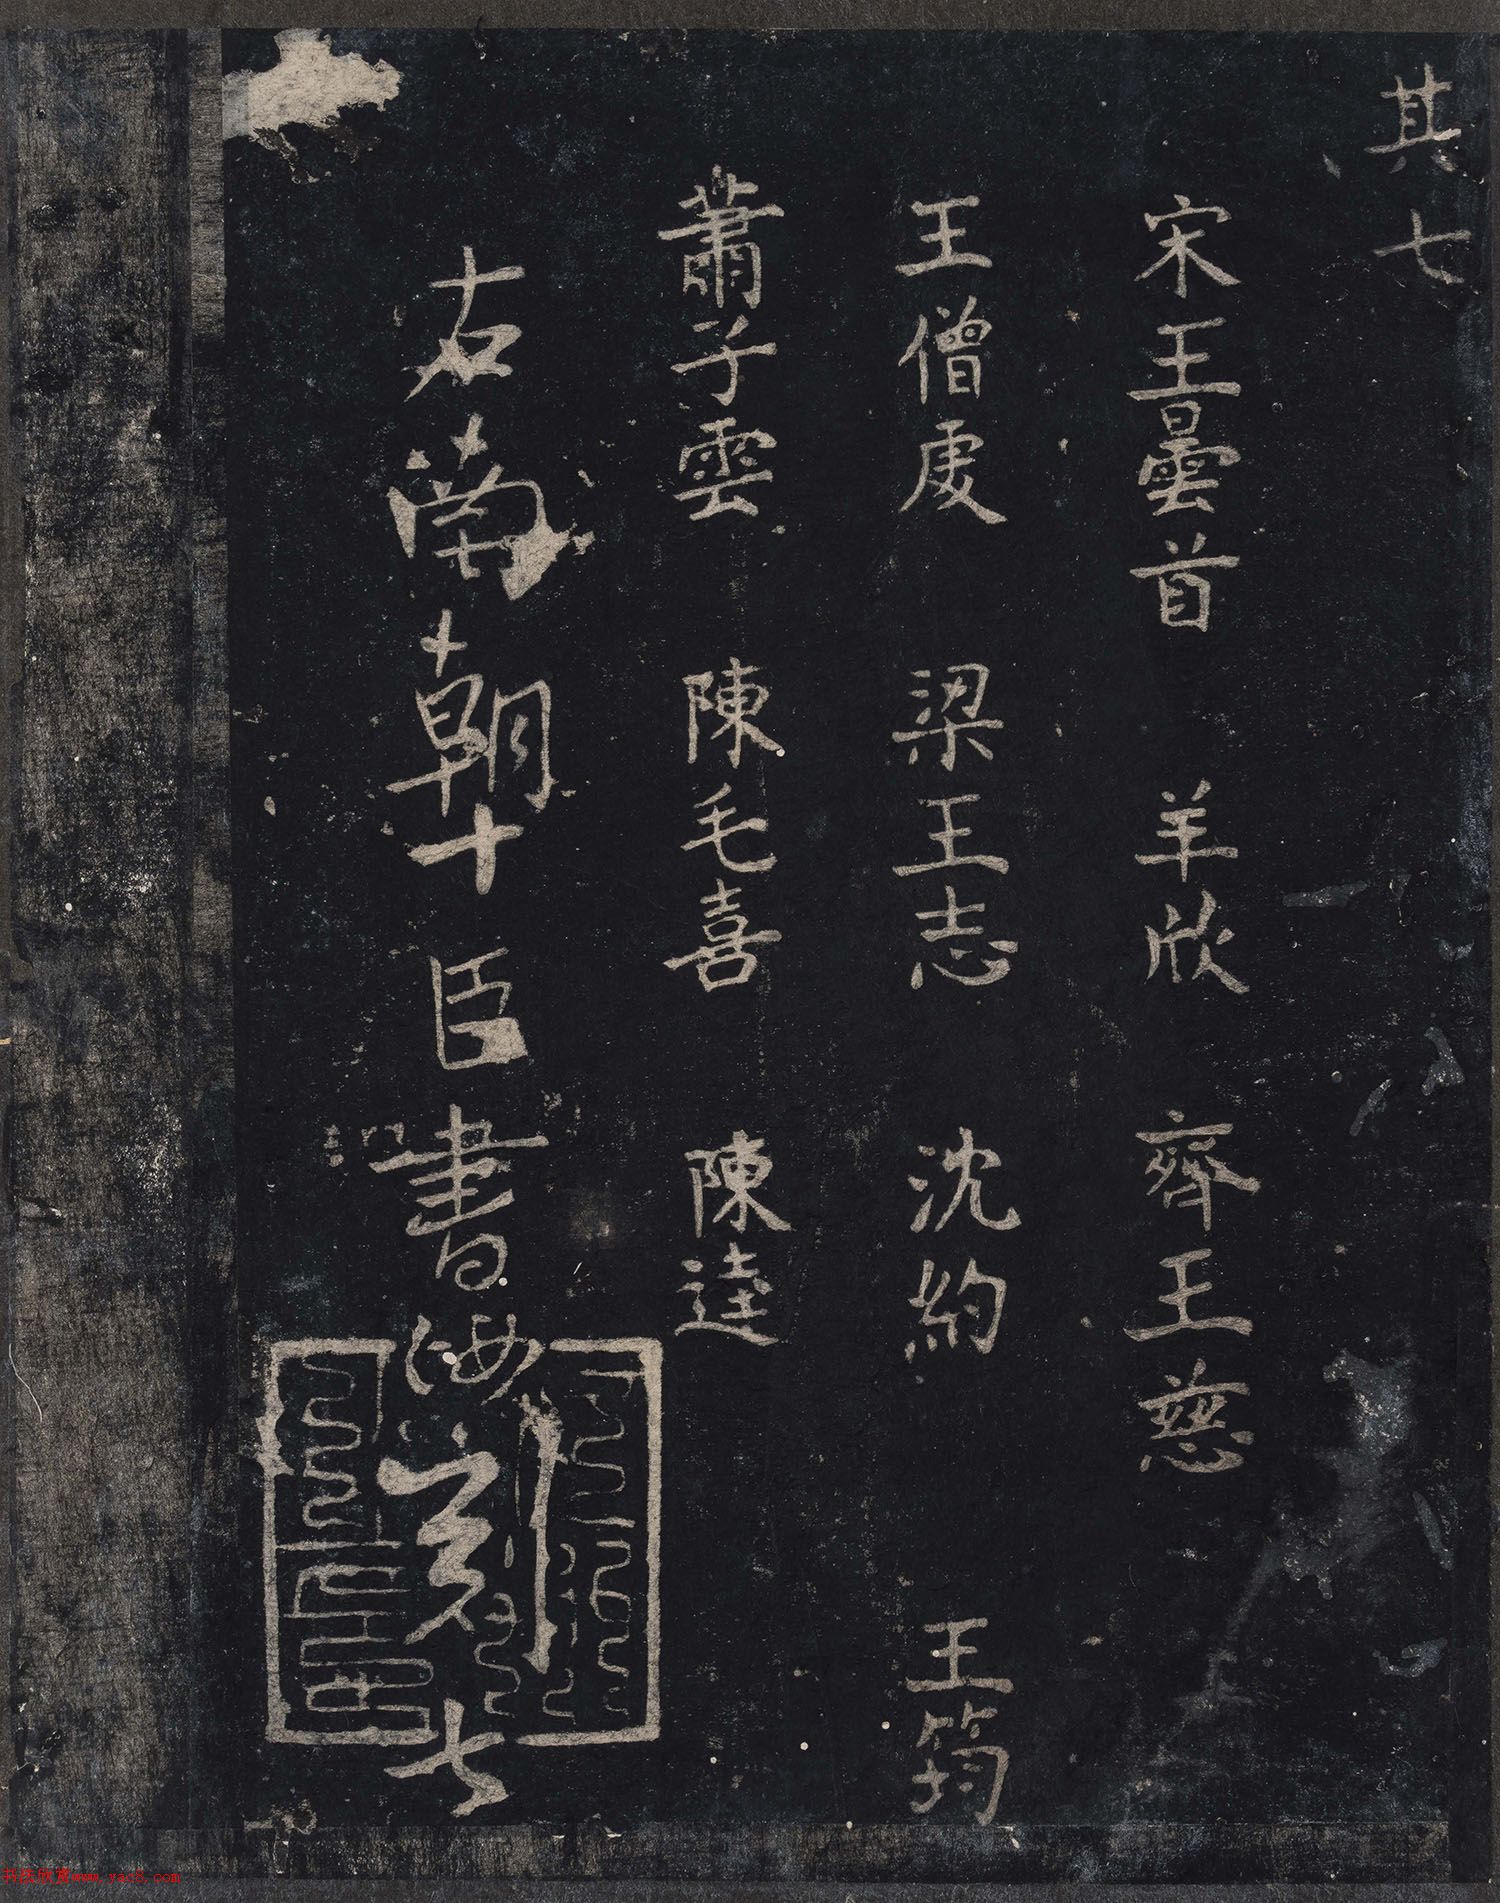 其七
宋王曇首 羊欣 齊王慈
王僧虔 梁王志 沈約 王筠
蕭子雲 陳毛喜 陳逵
右南朝十臣書汝刻七
书法欣赏www.yac8.com